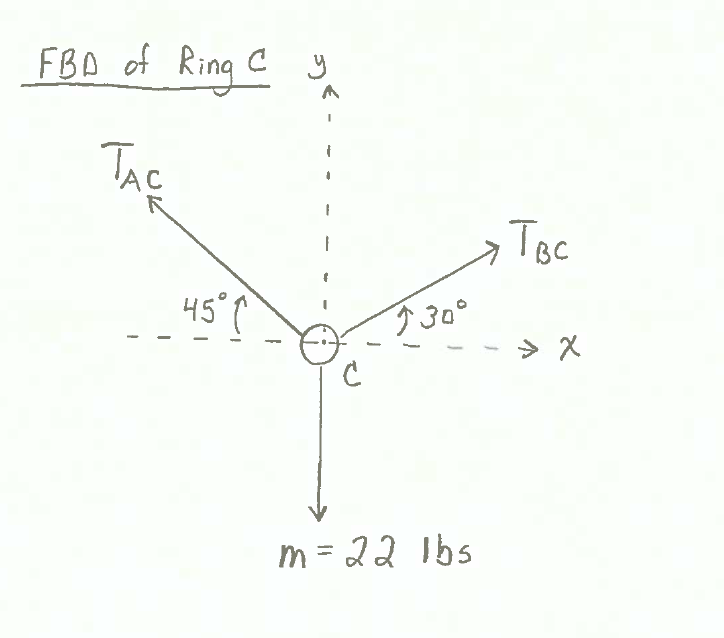 FBD of Ring C
y
TAC
TBC
45°
30°
x
C
m = 22 lbs